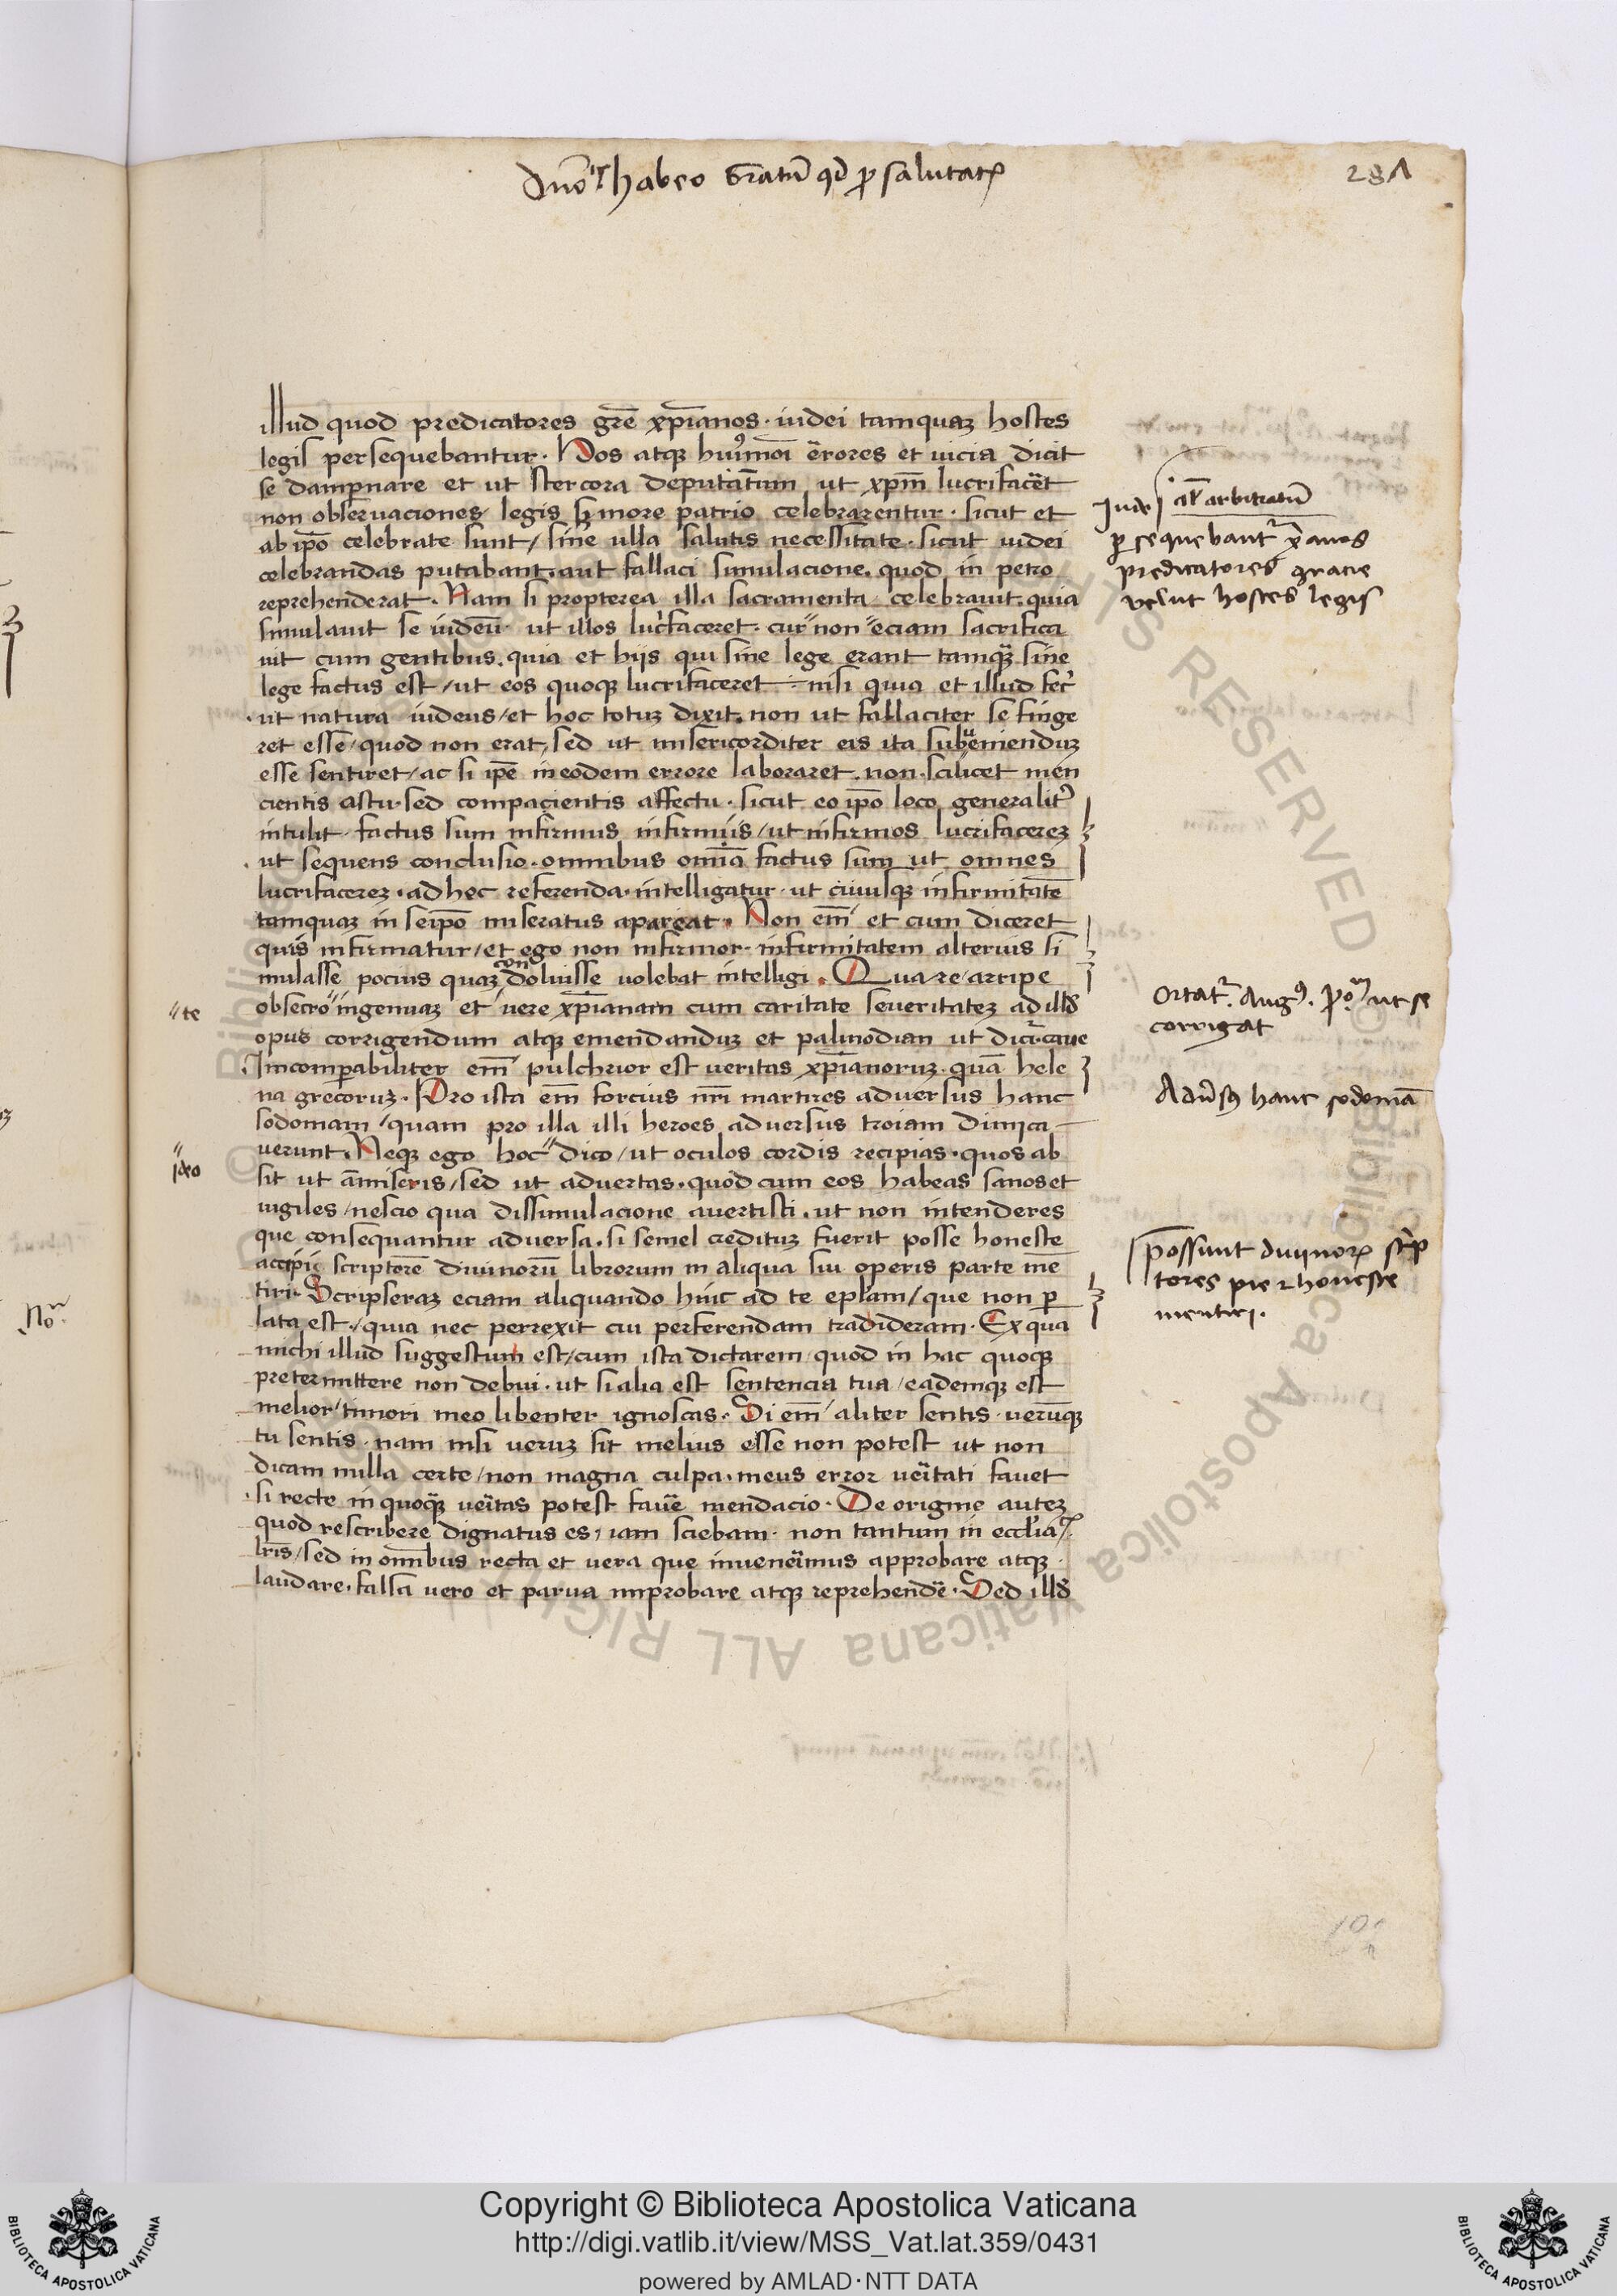 Duo habeo
281
illud quod predicatores grē xp̄ianos · iudei tamquaʒ hostes
legis persequebantur · Hos atqꝫ huiꝰmōi ērores et uicia dicit
se dampnare et ut stercora deputātum ut xpm̄ lucrifacēt
non obseruaciones legis si more patrio celebrarentur · sicut et
ab ip̄o celebrate sunt / sine ulla salutis necessitate · sicut iudei
celebrandas putabant · aut fallaci simulacione · quod in petro
reprehenderat · Nam si propterea illa sacramenta celebrauit · quia
simulauit se iudeū · ut illos lucrifaceret · cur non eciam sacrifica
uit cum gentibus · quia et hijs qui sine lege erant tamqꝫ sine
lege factus est / ut eos quoqꝫ lucrifaceret · nisi quia et illud fecꝰ
ut natura iudeus / et hoc totuʒ dixit · non ut fallaciter se finge
ret esse / quod non erat / sed ut misericorditer eis ita subuenienduʒ
esse sentiret / ac si ip̄e in eodem errore laboraret · non · scilicet men
cientis astu · sed compacientis affectu · sicut eo ip̄o loco generalitꝰ
intulit · factus sum infirmus infirmiis / ut infirmos lucrifacereʒ
ut sequens conclusio · omnibus om̄ia factus sum ut omnes
lucrifacereʒ · ad hec referenda · intelligatur · ut cuiusqꝫ infirmitatē
tamquaʒ in seip̄o miseratus apareat · Non em̄ et cum diceret
quis infirmatur / et ego non infirmor · infirmitatem alterius si
mulasse pocius quaʒ condoluisse uolebat intelligi · Quare / arripe
obsecro ingenuaʒ et uere xp̄ianam cum caritate seueritateʒ ad illd̄
te
opus corrigendum atqꝫ emendanduʒ et palinodian ut dicit᷑ cane
Incomꝑabiliter em̄ pulchrior est ueritas xp̄ianoruʒ · quā hele
na grecoruʒ · Pro ista em̄ forcius nr̄i martires aduersus hanc
sodomam / quam pro illa illi heroes aduersus troiam dimica
uerunt · Neqꝫ ego hoc dico / ut oculos cordis recipias · quos ab
sit ut āmiseris / sed ut aduertas · quod cum eos habeas sanos et
uigiles / nescio qua dissimulacione auertisti · ut non intenderes
que consequantur aduersa · si semel credituʒ fuerit posse honeste
accipi scriptorē diuinorū librorum in aliqua sui operis parte mē
tiri · Scripseraʒ eciam aliquando hinc ad te epl̄am / que non ꝑ
lata est / quia nec perrexit cui perferendam tradideram · Ex qua
michi illud suggestum est / cum ista dictarem quod in hac quoqꝫ
pretermittere non debui · ut si alia est sentencia tua / eademqꝫ est
melior / timori meo libenter ignoscas · Si em̄ aliter sentis · uerūqꝫ
tu sentis · nam nisi ueruʒ sit melius esse non potest ut non
dicam nulla certe / non magna culpa · meus error ueritati fauet
si recte in quoqꝫ ueritas potest fauē mendacio · De origine auteʒ
quod rescribere dignatus es / iam sciebam · non tantum in eccl̄iaꝝ
lr̄is / sed in om̄ibus recta et uera que inuenerimus approbare atqꝫ
laudare · falsa uero et parua improbare atqꝫ reprehendē · Sed illd̄
al̄ arbitratū
ꝑsequebant᷑ xp̄ianos
predicatores gracie
velut hostes legis
Ortat᷑ Augꝰ · ut se
corrigat
Adūsꝰ hanc sodomā
possunt diuinoꝝ scrip
tores pie ⁊ honeste
mentiri ·
Copyright © Biblioteca Apostolica Vaticana
http://digi.vatlib.it/view/MSS_Vat.lat.359/0431
powered by AMLAD·NTT DATA
BIBLIOTECA APOSTOLICA VATICANA
BIBLIOTECA APOSTOLICA VATICANA
© Biblioteca Apostolica Vaticana ALL RIGHTS RESERVED